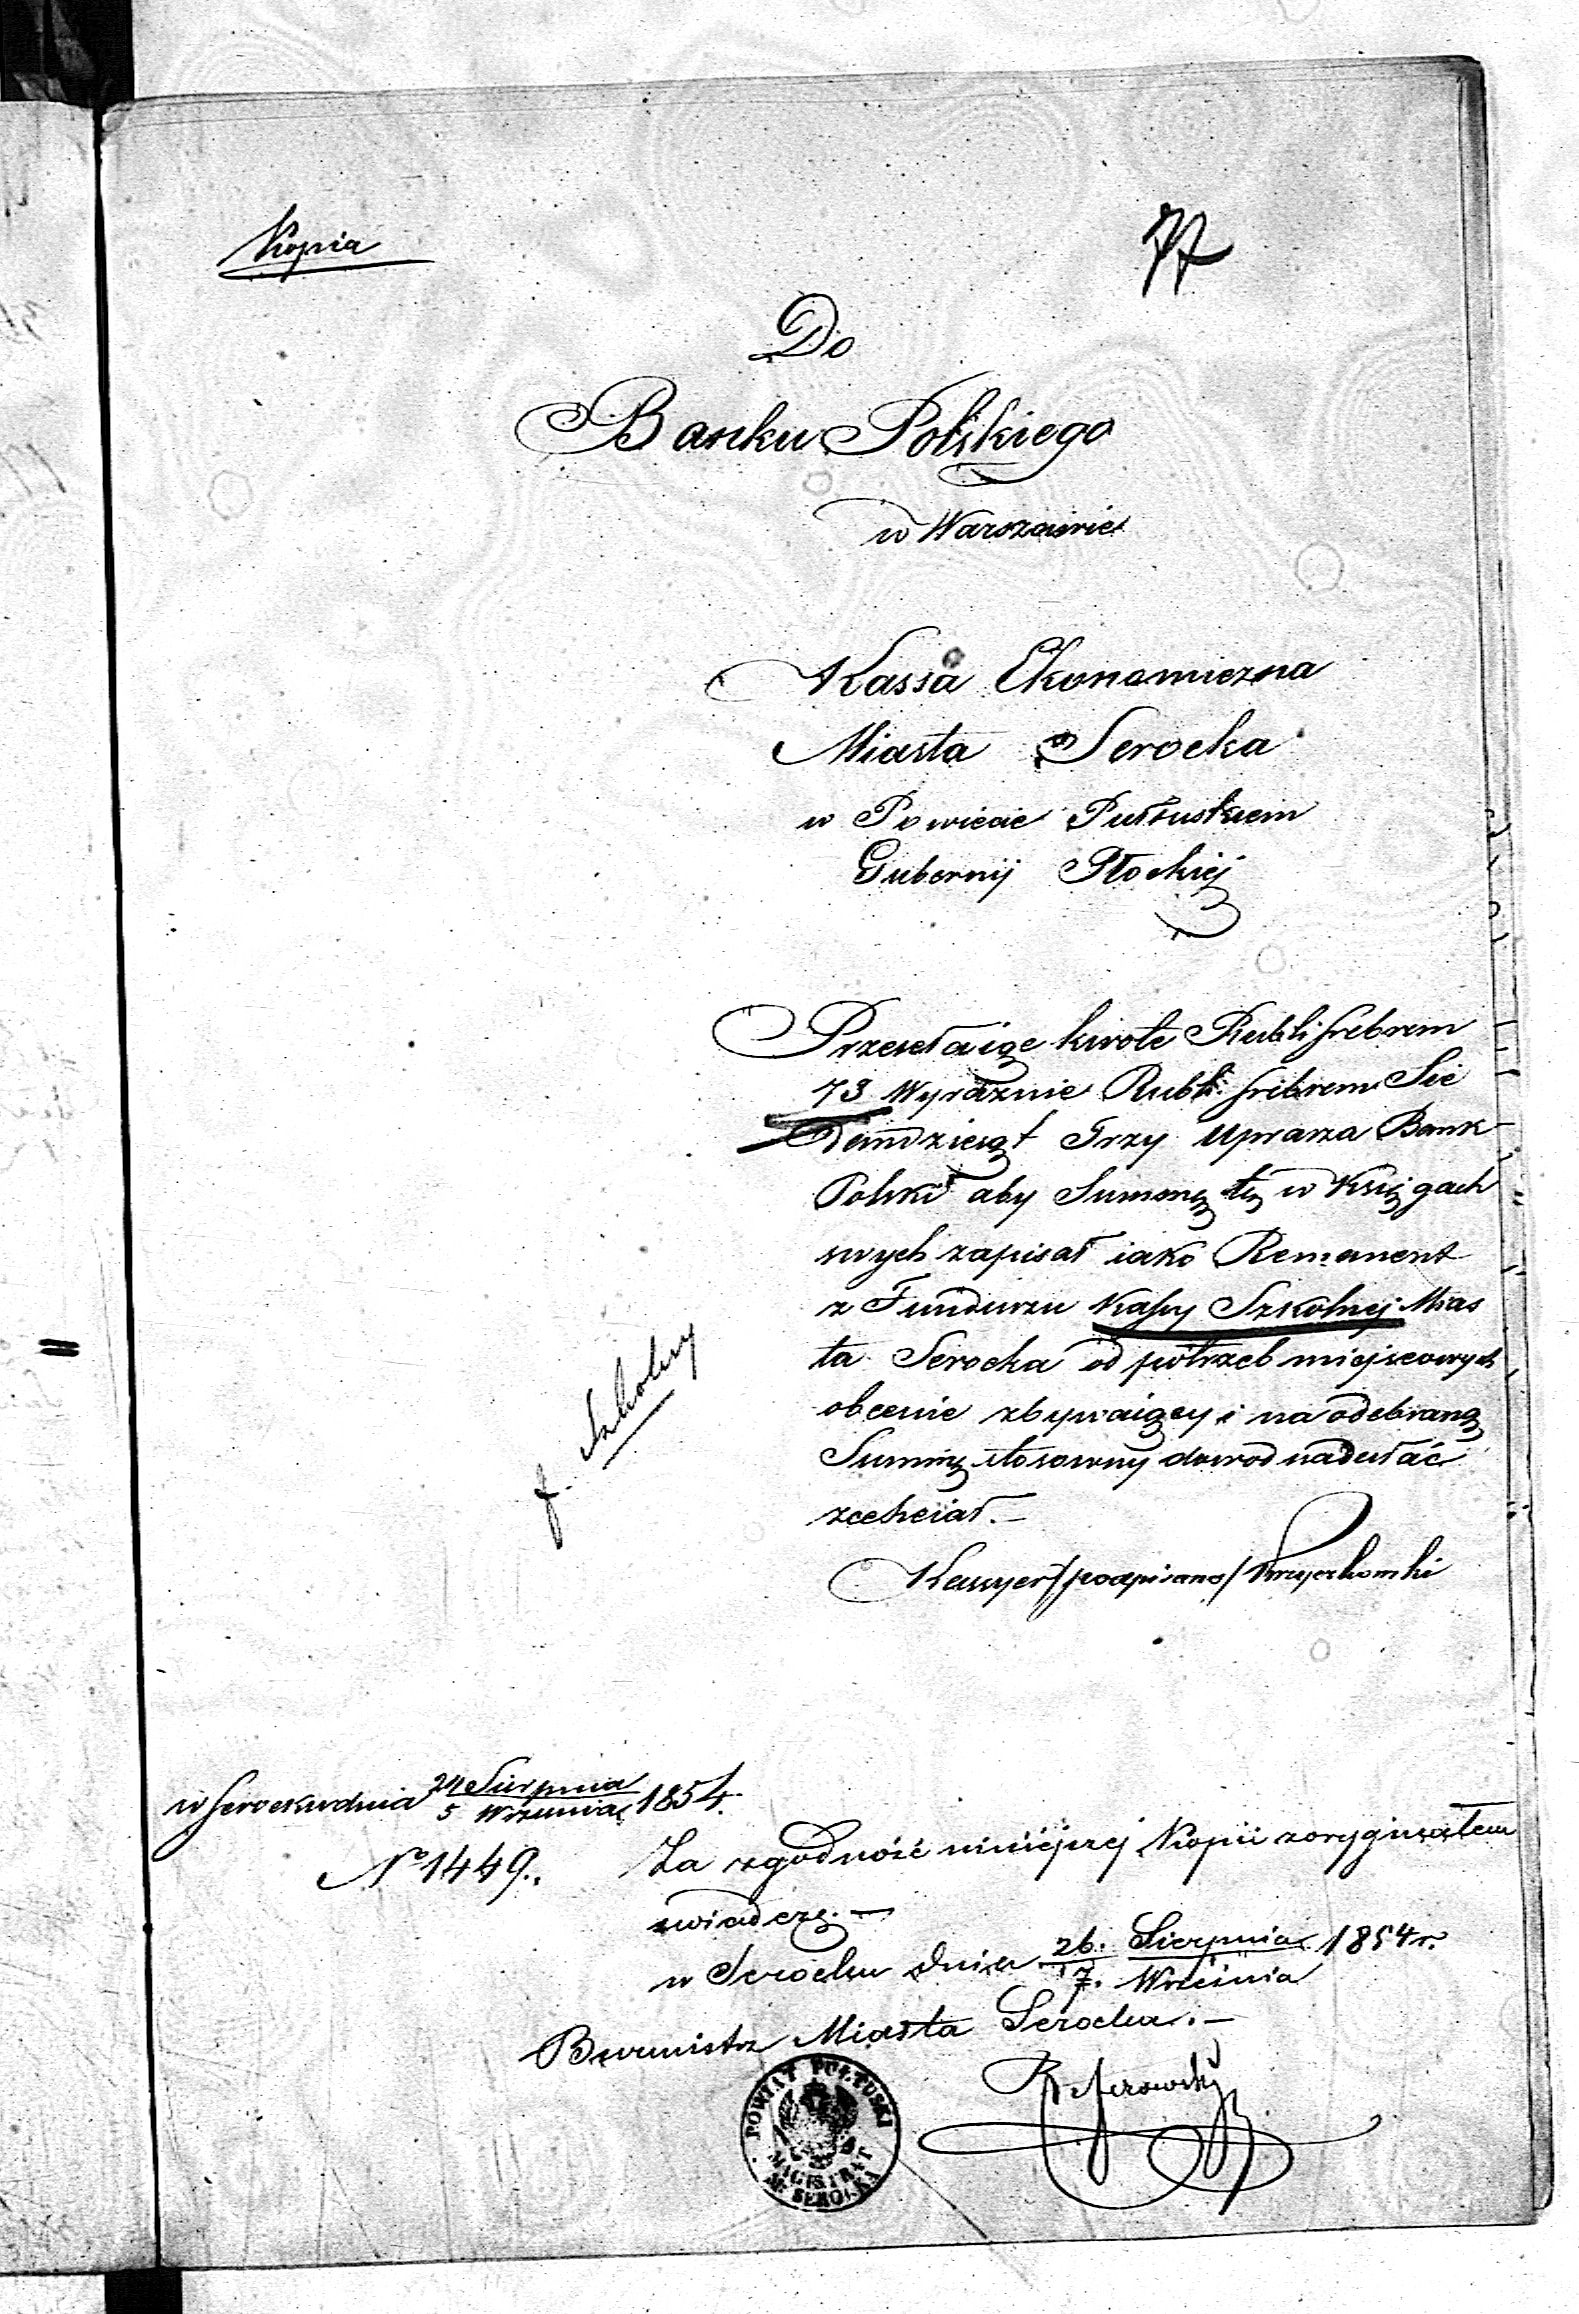 Kopia
77
Do
Banku Polskiego
w Warszawie
Kassa Ekonomiczna
Miasta Serocka
w Powiecie Pułtuskiem
Gubernij Płockiej
Przesełaiąc kwotę Rubli srebrem
73 Wyraźnie Rubli srebrem Sie
demdziesiąt Trzy uprasza Bank
Polski aby Summę tę w Księgach
swych zapisał iako Remanent
z Funduszu Kassy Szkolnej Mias
ta Serocka od potrzeb miejscowych
obecnie zbywaiący i na odebraną
Summę stosowny dowod nadesłać
zechciał. —
f. Szkolny
Kassyer /podpisano/
w Serocku dnia 24 Sierpnia
5 Września 1854.
No 1449.
Za zgodność niniejszej Kopii z oryginałem
swiadczę. —
w Serocku dnia 26. Sierpnia
7. Września 1854 r.
Burmistrz Miasta Serocka. —
POWIAT PUŁTUSKI
MAGISTRAT
M. SEROCKA